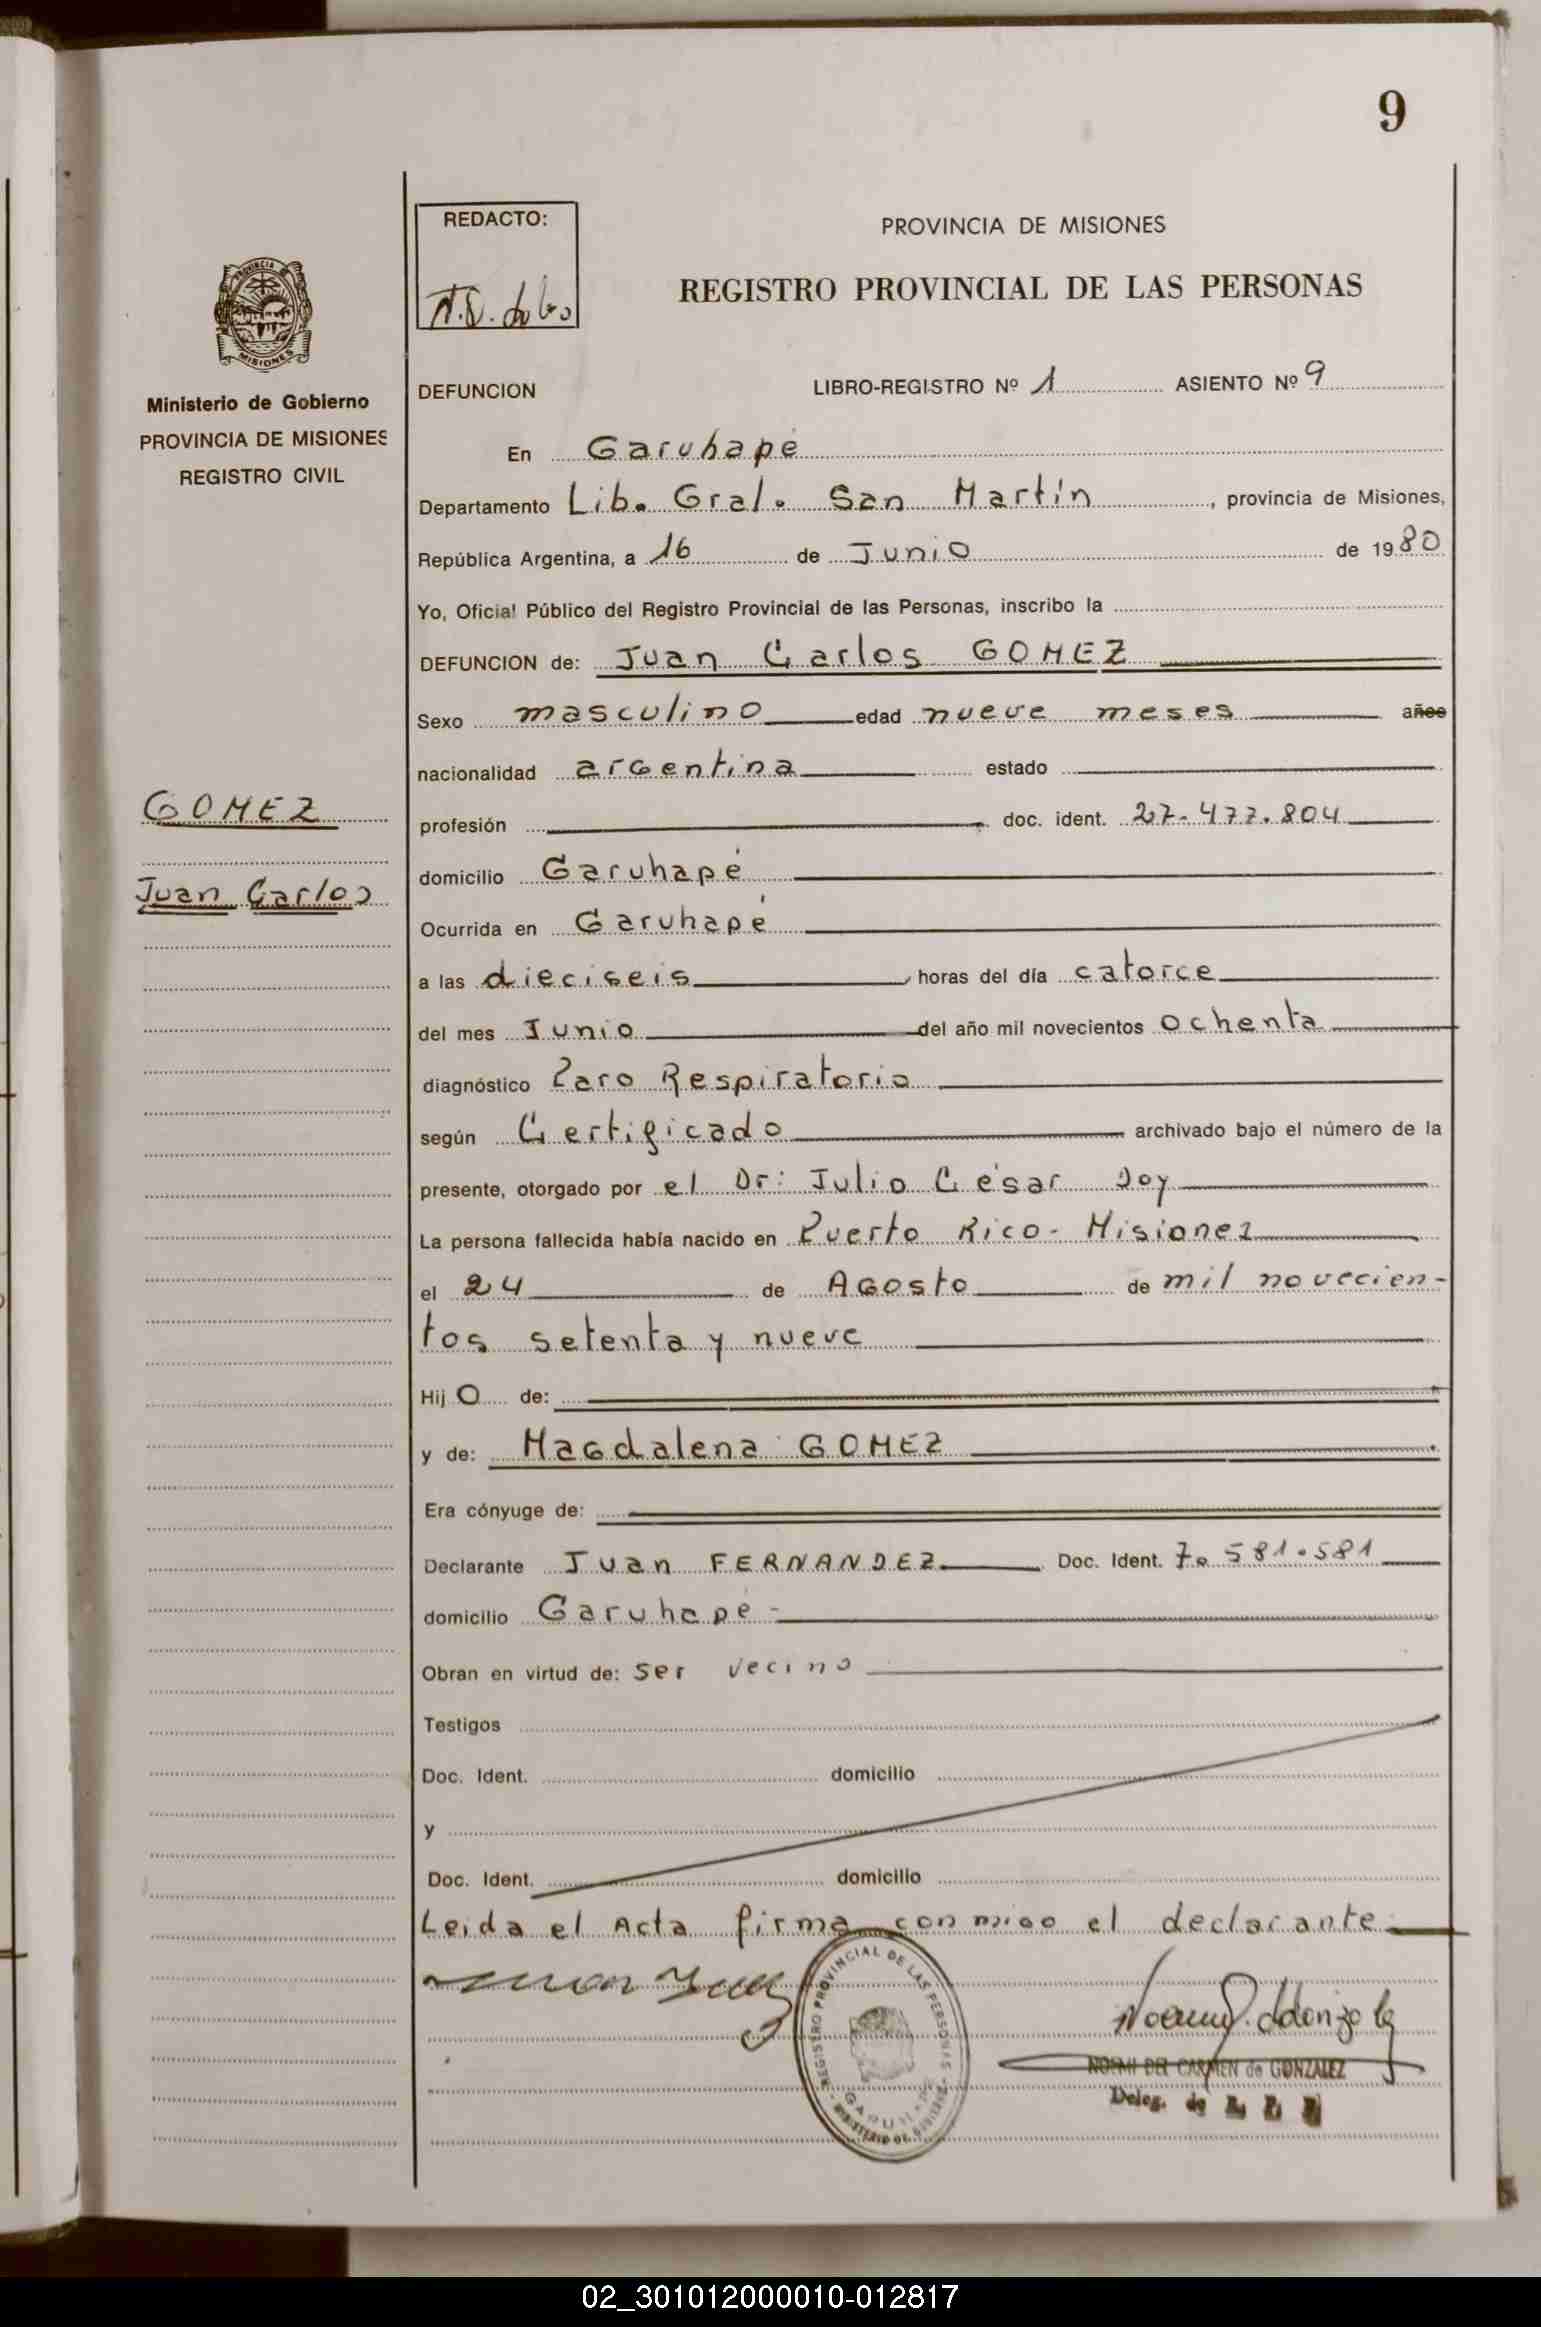 9
REDACTO:
PROVINCIA DE MISIONES
REGISTRO PROVINCIAL DE LAS PERSONAS
PROVINCIA DE
MISIONES
Ministerio de Gobierno
PROVINCIA DE MISIONES
REGISTRO CIVIL
DEFUNCION LIBRO-REGISTRO Nº 1 ASIENTO Nº 9
En Garuhapé
Departamento Lib. Gral. San Martín, provincia de Misiones,
República Argentina, a 16 de Junio de 1980
Yo, Oficial Público del Registro Provincial de las Personas, inscribo la
DEFUNCION de: Juan Carlos GOMEZ
Sexo masculino edad nueve meses años
nacionalidad argentina estado
GOMEZ
Juan Carlos
profesión doc. ident. 27.477.804
domicilio Garuhapé
Ocurrida en Garuhapé
a las dieciseis horas del día catorce
del mes Junio del año mil novecientos ochenta
diagnóstico Paro Respiratorio
según Certificado archivado bajo el número de la
presente, otorgado por el Dr: Julio César Doy
La persona fallecida había nacido en Puerto Rico - Misiones
el 24 de Agosto de mil novecien-
tos setenta y nueve
Hij o de:
y de: Magdalena GOMEZ
Era cónyuge de:
Declarante Juan FERNANDEZ Doc. Ident. 7.581.581
domicilio Garuhapé -
Obran en virtud de: ser vecino
Testigos
Doc. Ident. domicilio
y
Doc. Ident. domicilio
Leida el Acta firma conmigo el declarante
REGISTRO PROVINCIAL DE LAS PERSONAS
NOEMI DEL CARMEN de GONZALEZ
Deleg. de
02_301012000010-012817